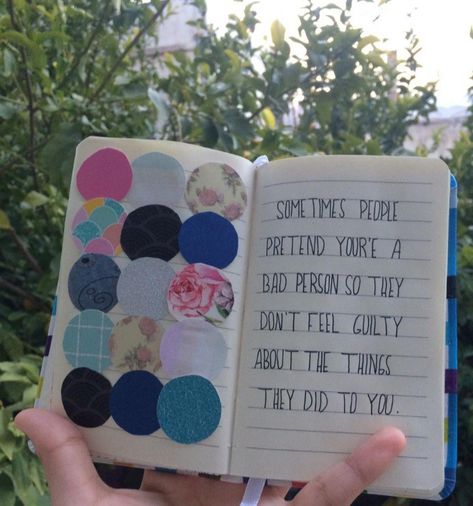 SOMETIMES PEOPLE
PRETEND YOUR'E A
BAD PERSON SO THEY
DON'T FEEL GUILTY
ABOUT THE THINGS
THEY DID TO YOU.